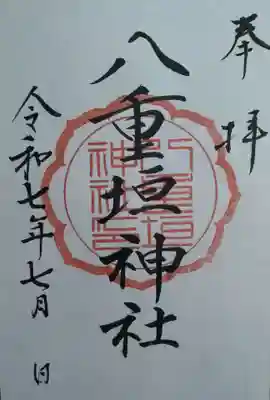 奉拝
八重垣神社
八重垣神社印
令和七年七月 日